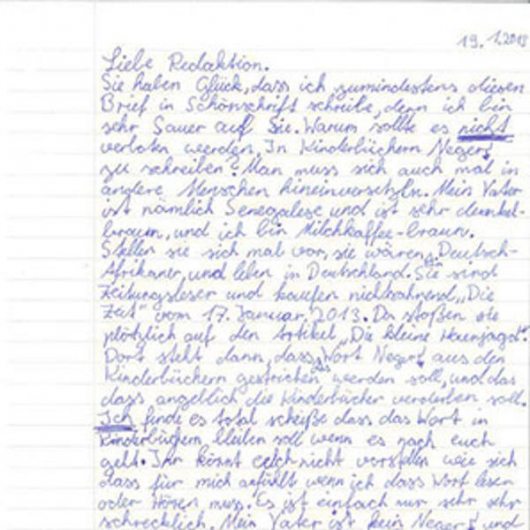 19.1.2013
Liebe Redaktion.
Sie haben Glück, dass ich zumindestens diesen
Brief in Schönschrift schreibe, denn ich bin
sehr Sauer auf Sie. Warum sollte es nicht
verboten werden. In Kinderbüchern Neger
zu schreiben? Man muss sich auch mal in
andere Menschen hineinversetzen. Mein Vater
ist nämlich Senegalese und ist sehr dunkel-
braun, und ich bin Milchkaffee-braun.
Stellen sie sich mal vor, sie wären „Deutsch-
Afrikaner, und leben in Deutschland. Sie sind
Zeitungsleser und kaufen nichtsahnend „Die
Zeit" vom 17. Januar 2013. Da stoßen sie
plötzlich auf den Artikel „Die kleine Hexenjagd".
Dort steht dann, dass das Wort Neger aus den
Kinderbüchern gestrichen werden soll, und das
dass angeblich die Kinderbücher verdorben soll.
Ich finde es total scheiße dass das Wort in
Kinderbüchern bleiben soll wenn es nach euch
geht. Ihr könnt euch nicht vorstellen wie sich
dass für mich anfühlt wenn ich dass Wort lesen
oder Hören muss. Es ist einfach nur sehr sehr
schrecklich. Mein Vater ist kein und